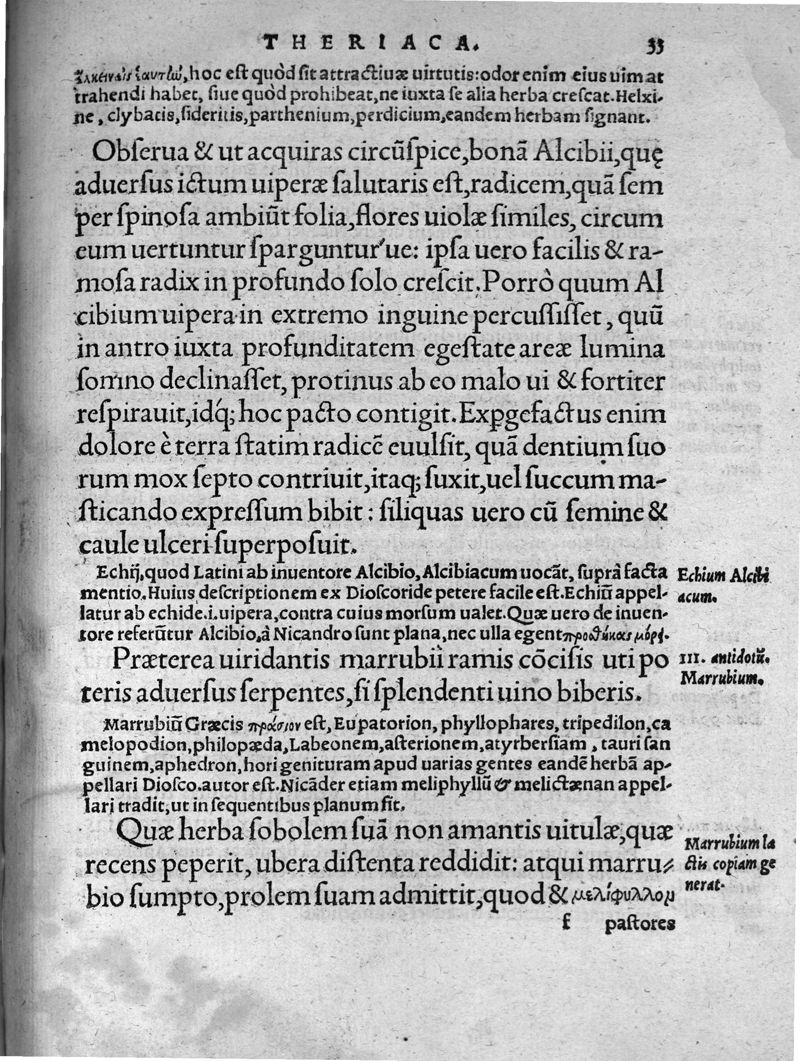 THERIACA. 33
ἑαυτῶ, hoc eſt quòd ſit attractiuæ uirtutis: odor enim eius uim at
trahendi habet, ſiue quòd prohibeat, ne iuxta ſe alia herba creſcat. Helxi-
ne, clybatis, ſideritis, parthenium, perdicium, eandem herbam ſignant.
Obſerua & ut acquiras circũſpice, bonã Alcibii, quę
aduerſus ictum uiperæ ſalutaris eſt, radicem, quã ſem
per ſpinoſa ambiũt folia, flores uiolæ ſimiles, circum
eum uertuntur ſparguntur'ue: ipſa uero facilis & ra-
moſa radix in profundo ſolo creſcit. Porrò quum Al
cibium uipera in extremo inguine percuſſiſſet, quũ
in antro iuxta profunditatem egeſtate areæ lumina
ſomno declinaſſet, protinus ab eo malo ui & fortiter
reſpirauit, idq́; hoc pacto contigit. Expgefactus enim
dolore è terra ſtatim radicẽ euulſit, quã dentium ſuo
rum mox ſepto contriuit, itaq; ſuxit, uel ſuccum ma-
ſticando expreſſum bibit: ſiliquas uero cũ ſemine &
caule ulceri ſuperpoſuit.
Echij, quod Latini ab inuentore Alcibio, Alcibiacum uocãt, ſuprà facta
mentio. Huius deſcriptionem ex Dioſcoride petere facile eſt. Echiũ appel-
latur ab echide .i. uipera, contra cuius morſum ualet. Quæ uero de inuen-
tore referũtur Alcibio, à Nicandro ſunt plana, nec ulla egent
Echium Alcibi
acum.
Præterea uiridantis marrubii ramis cõciſis uti po
teris aduerſus ſerpentes, ſi ſplendenti uino biberis.
III. antidotũ.
Marrubium.
Marrubiũ Græcis πράσιον eſt, Eupatorion, phyllophares, tripedilon, ca
melopodion, philopæda, Labeonem, aſterionem, atyrberſiam, tauri ſan
guinem, aphedron, hori genituram apud uarias gentes eandẽ herbã ap-
pellari Dioſco. autor eſt. Nicãder etiam meliphyllũ & melictænan appel-
lari tradit, ut in ſequentibus planum fit.
Quæ herba ſobolem ſuã non amantis uitulæ, quæ
recens peperit, ubera diſtenta reddidit: atqui marru-
bio ſumpto, prolem ſuam admittit, quod & μελίφυλλον
Marrubium la
ctis copiam ge
nerat.
f paſtores